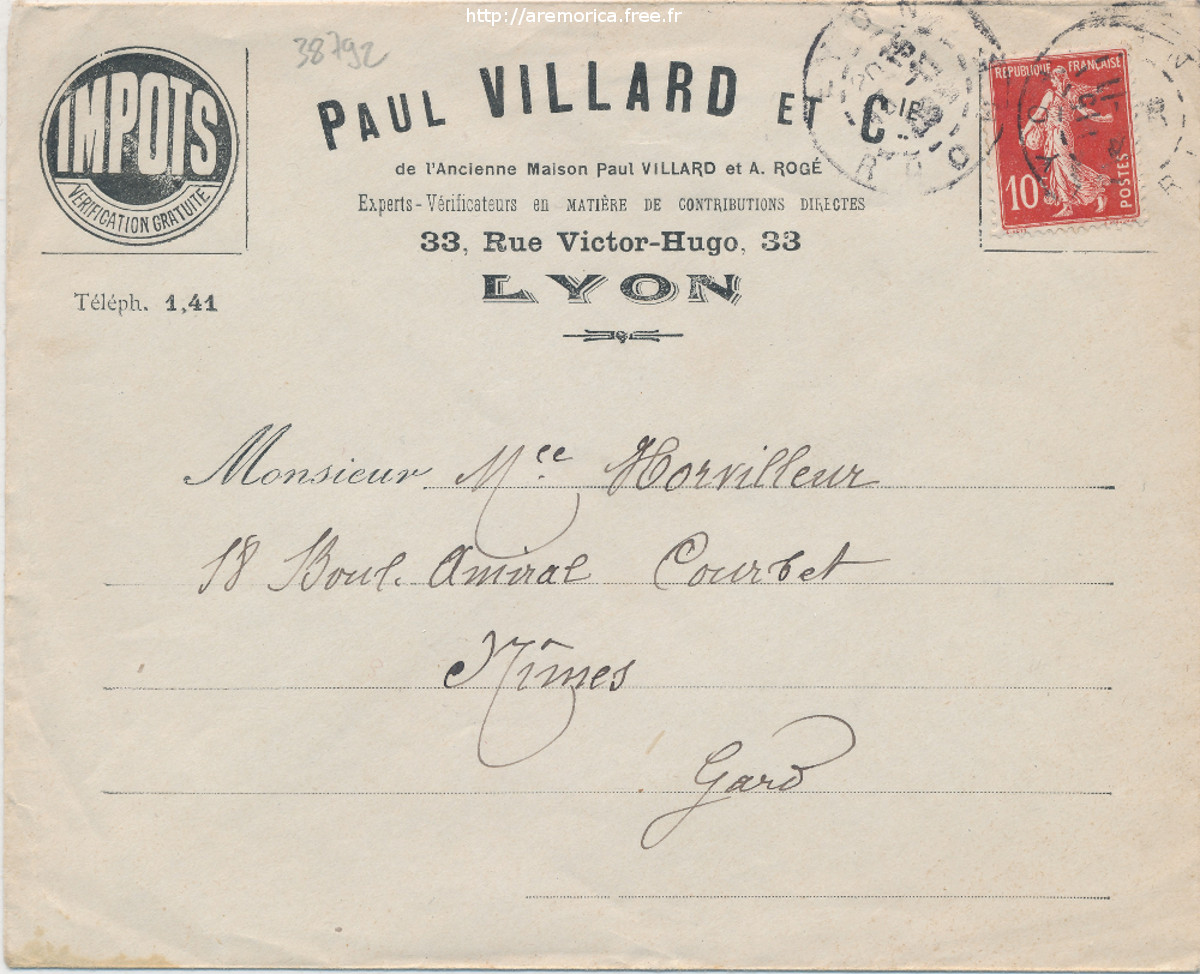 http://aremorica.free.fr
38792
IMPOTS
VÉRIFICATION GRATUITE
PAUL VILLARD ET C
de l'Ancienne Maison Paul VILLARD et A. ROGÉ
Experts-Vérificateurs en MATIÈRE DE CONTRIBUTIONS DIRECTES
33, Rue Victor-Hugo, 33
LYON
Téléph. 1,41
RÉPUBLIQUE FRANÇAISE
10
POSTES
LYON
RHONE
Monsieur Mce Horvilleur
18 Boul. Amiral Courbet
Nîmes
Gard